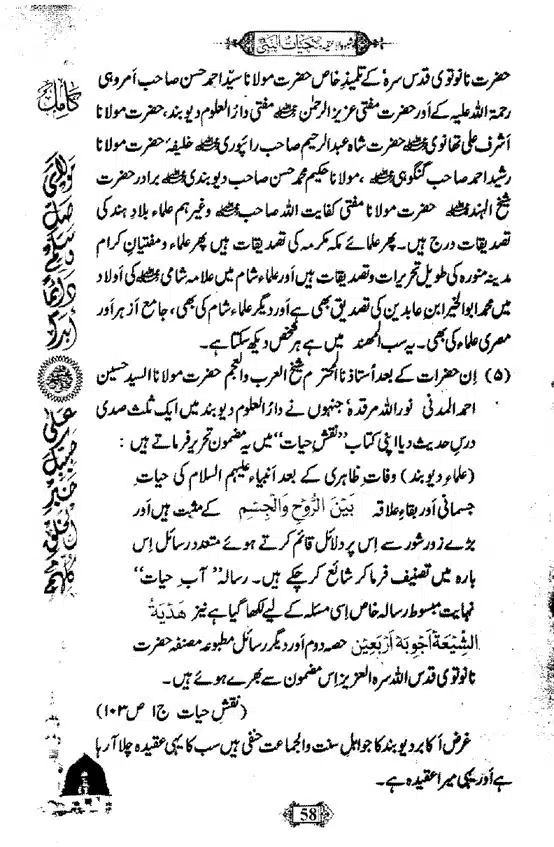 حیات النبی
حضرت نانوتوی قدس سرہ کے تلمیذِ خاص حضرت مولانا سیّد احمد حسن صاحب امروہی
رحمۃ اللہ علیہ کے اَور حضرت مفتی عزیز الرحمٰن رحمہ اللہ مفتی دارُ العلوم دیوبند، حضرت مولانا
اَشرف علی تھانوی رحمہ اللہ حضرت شاہ عبد الرحیم صاحب رائپوری رحمہ اللہ خلیفہ حضرت مولانا
رشید احمد صاحب گنگوہی رحمہ اللہ، مولانا حکیم محمد حسن صاحب دیوبندی رحمہ اللہ برادر حضرت
شیخ الہند رحمہ اللہ حضرت مولانا مفتی کفایت اللہ صاحب رحمہ اللہ وغیرہم علماء بلادِ ہند کی
تصدیقات درج ہیں۔ پھر علمائے مکہ مکرمہ کی تصدیقات ہیں پھر علماء و مفتیانِ کرام
مدینہ منورہ کی طویل تحریرات و تصدیقات ہیں اَور علماءِ شام میں علامہ شامی رحمہ اللہ کی اَولاد
میں محمد ابو الخیر اِبن عابدین کی تصدیق بھی ہے اَور دیگر علماءِ شام کی بھی، جامع اَزہر اَور
مصری علماء کی بھی۔ یہ سب المھند میں ہے ہر شخص دیکھ سکتا ہے۔
(۵) اِن حضرات کے بعد اُستاذنا المحترم شیخ العرب والعجم حضرت مولانا السید حسین
احمد المدنی نور اللہ مرقدہٗ جنہوں نے دارُ العلوم دیوبند میں ایک ثلث صدی
درسِ حدیث دیا اپنی کتاب ’’نقشِ حیات‘‘ میں یہ مضمون تحریر فرماتے ہیں :
(علماءِ دیوبند) وفاتِ ظاہری کے بعد اَنبیاء علیہم السلام کی حیاتِ
جسمانی اَور بقاءِ علاقہ بَیْنَ الرُّوْحِ وَالْجِسْمِ کے مثبت ہیں اَور
بڑے زور شور سے اِس پر دلائل قائم کرتے ہوئے متعدد رسائل اِس
بارہ میں تصنیف فرما کر شائع کر چکے ہیں۔ رسالہ ’’آبِ حیات‘‘
نہایت مبسوط رسالہ خاص اِسی مسئلہ کے لیے لکھا گیا ہے نیز ھَدْیَۃُ
الشِّیْعَۃ اَجْوِبَۃ اَرْبَعِیْن حصہ دوم اَور دیگر رسائل مطبوعہ مصنفہ حضرت
نانوتوی قدس اللہ سرہ العزیز اِس مضمون سے بھرے ہوئے ہیں۔
(نقشِ حیات ج ۱ ص ۱۰۳)
غرض اَکابرِ دیوبند کا جو اہلِ سنت والجماعت حنفی ہیں سب کا یہی عقیدہ چلا آ رہا
ہے اَور یہی میرا عقیدہ ہے۔
مولای صل وسلم دائما ابدا
علی حبیبک خیر الخلق کلہم
58